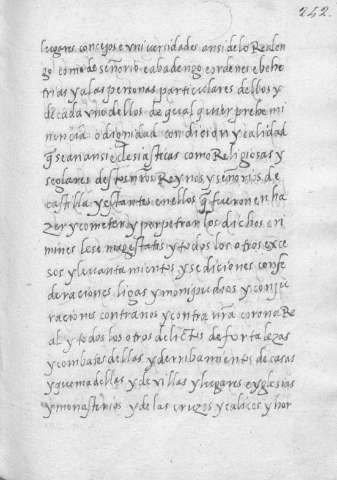 242.
lugares concejos e vniversidades ansi de lo Realen
go como de señorio e abadengo e ordenes e behe
trias y a las personas particulares dellos y
de cada vno dellos de qualquier prehemi
nencia o dignidad condicion y calidad
q sean ansi eclesiasticas como Religiosas y
seglares destos nros Reynos y señorios de
castilla y estantes en ellos q fueron en ha
zer y cometer y perpetran los dichos cri
mines lese magestatis y todos los otros exce
sos y levantamientos y sediciones confe
deraciones ligas y monipudios y conju
raciones contra nos y contra nra corona Re
al y todos los otros delictos de fortalezas
y combates dellas y derribamientos de casas
y quema dellas y de villas y lugares e yglesias
y monesterios y de las cruzes y calices y hor